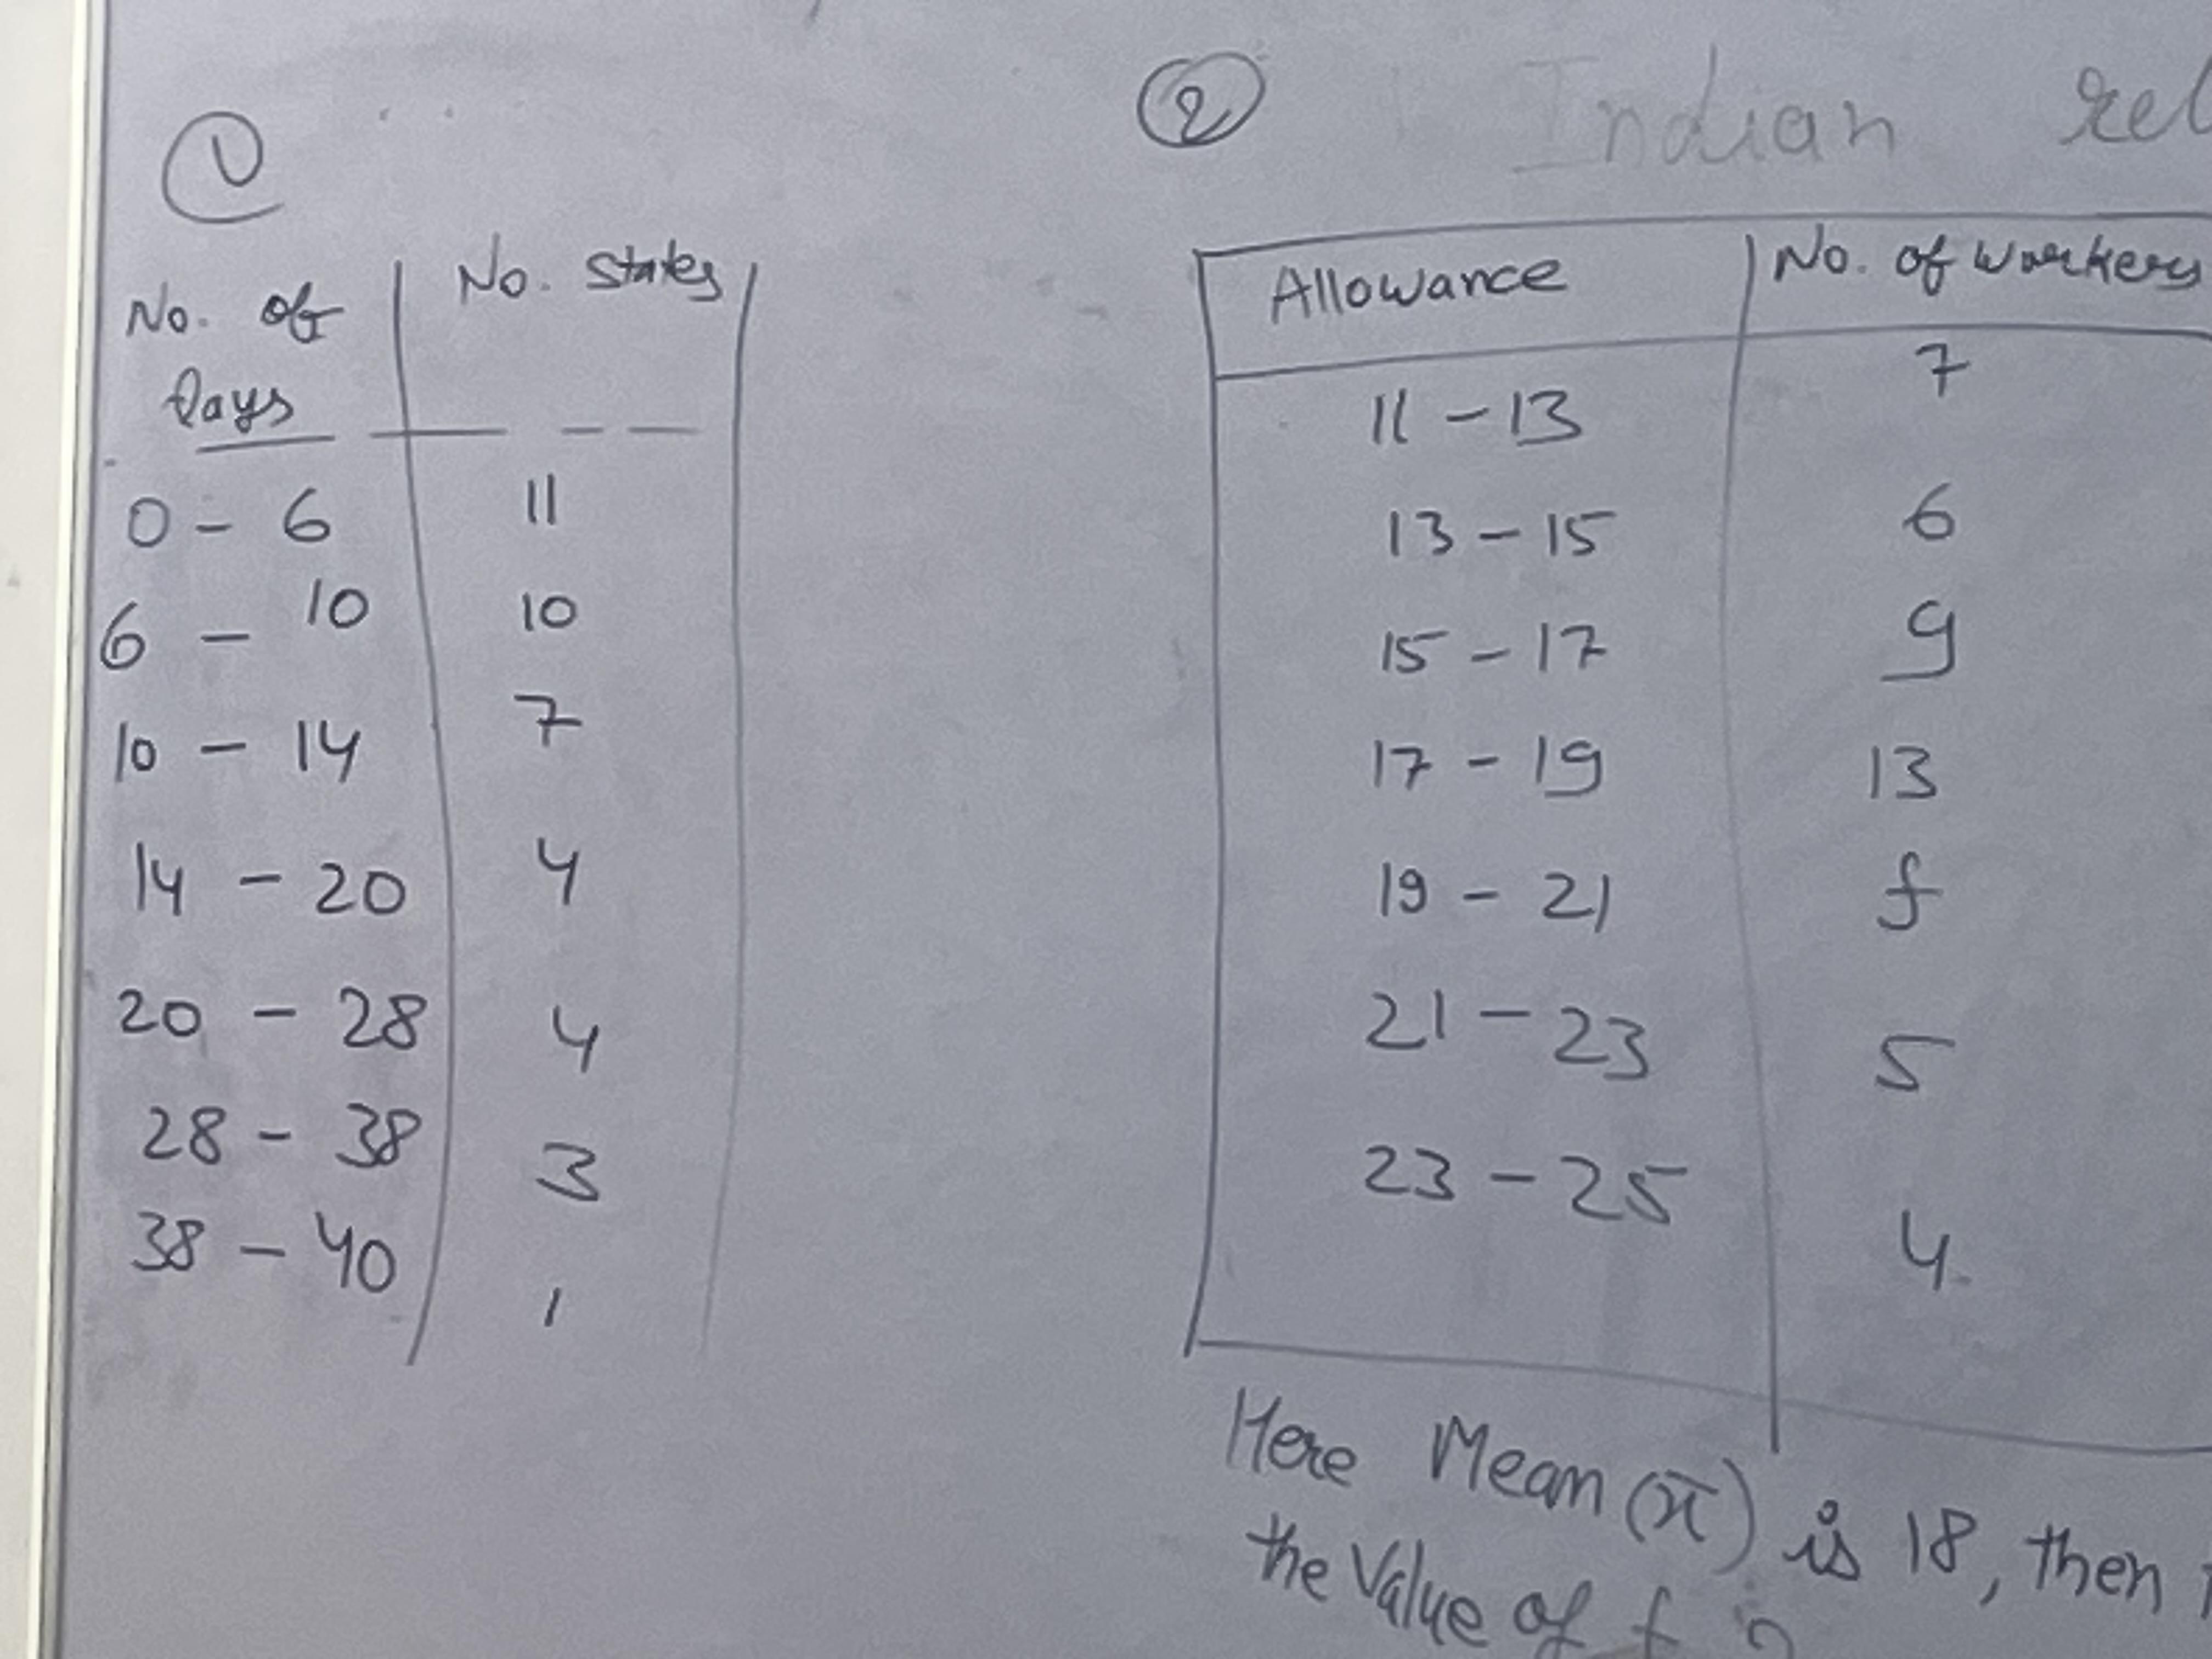 1
No. of | No. states
Days
0 - 6 | 11
6 - 10 | 10
10 - 14 | 7
14 - 20 | 4
20 - 28 | 4
28 - 38 | 3
38 - 40 | 1
2
Indian
Allowance | No. of workers
11 - 13 | 7
13 - 15 | 6
15 - 17 | 9
17 - 19 | 13
19 - 21 | f
21 - 23 | 5
23 - 25 | 4
Here Mean (x̄) is 18, then
the Value of f ?